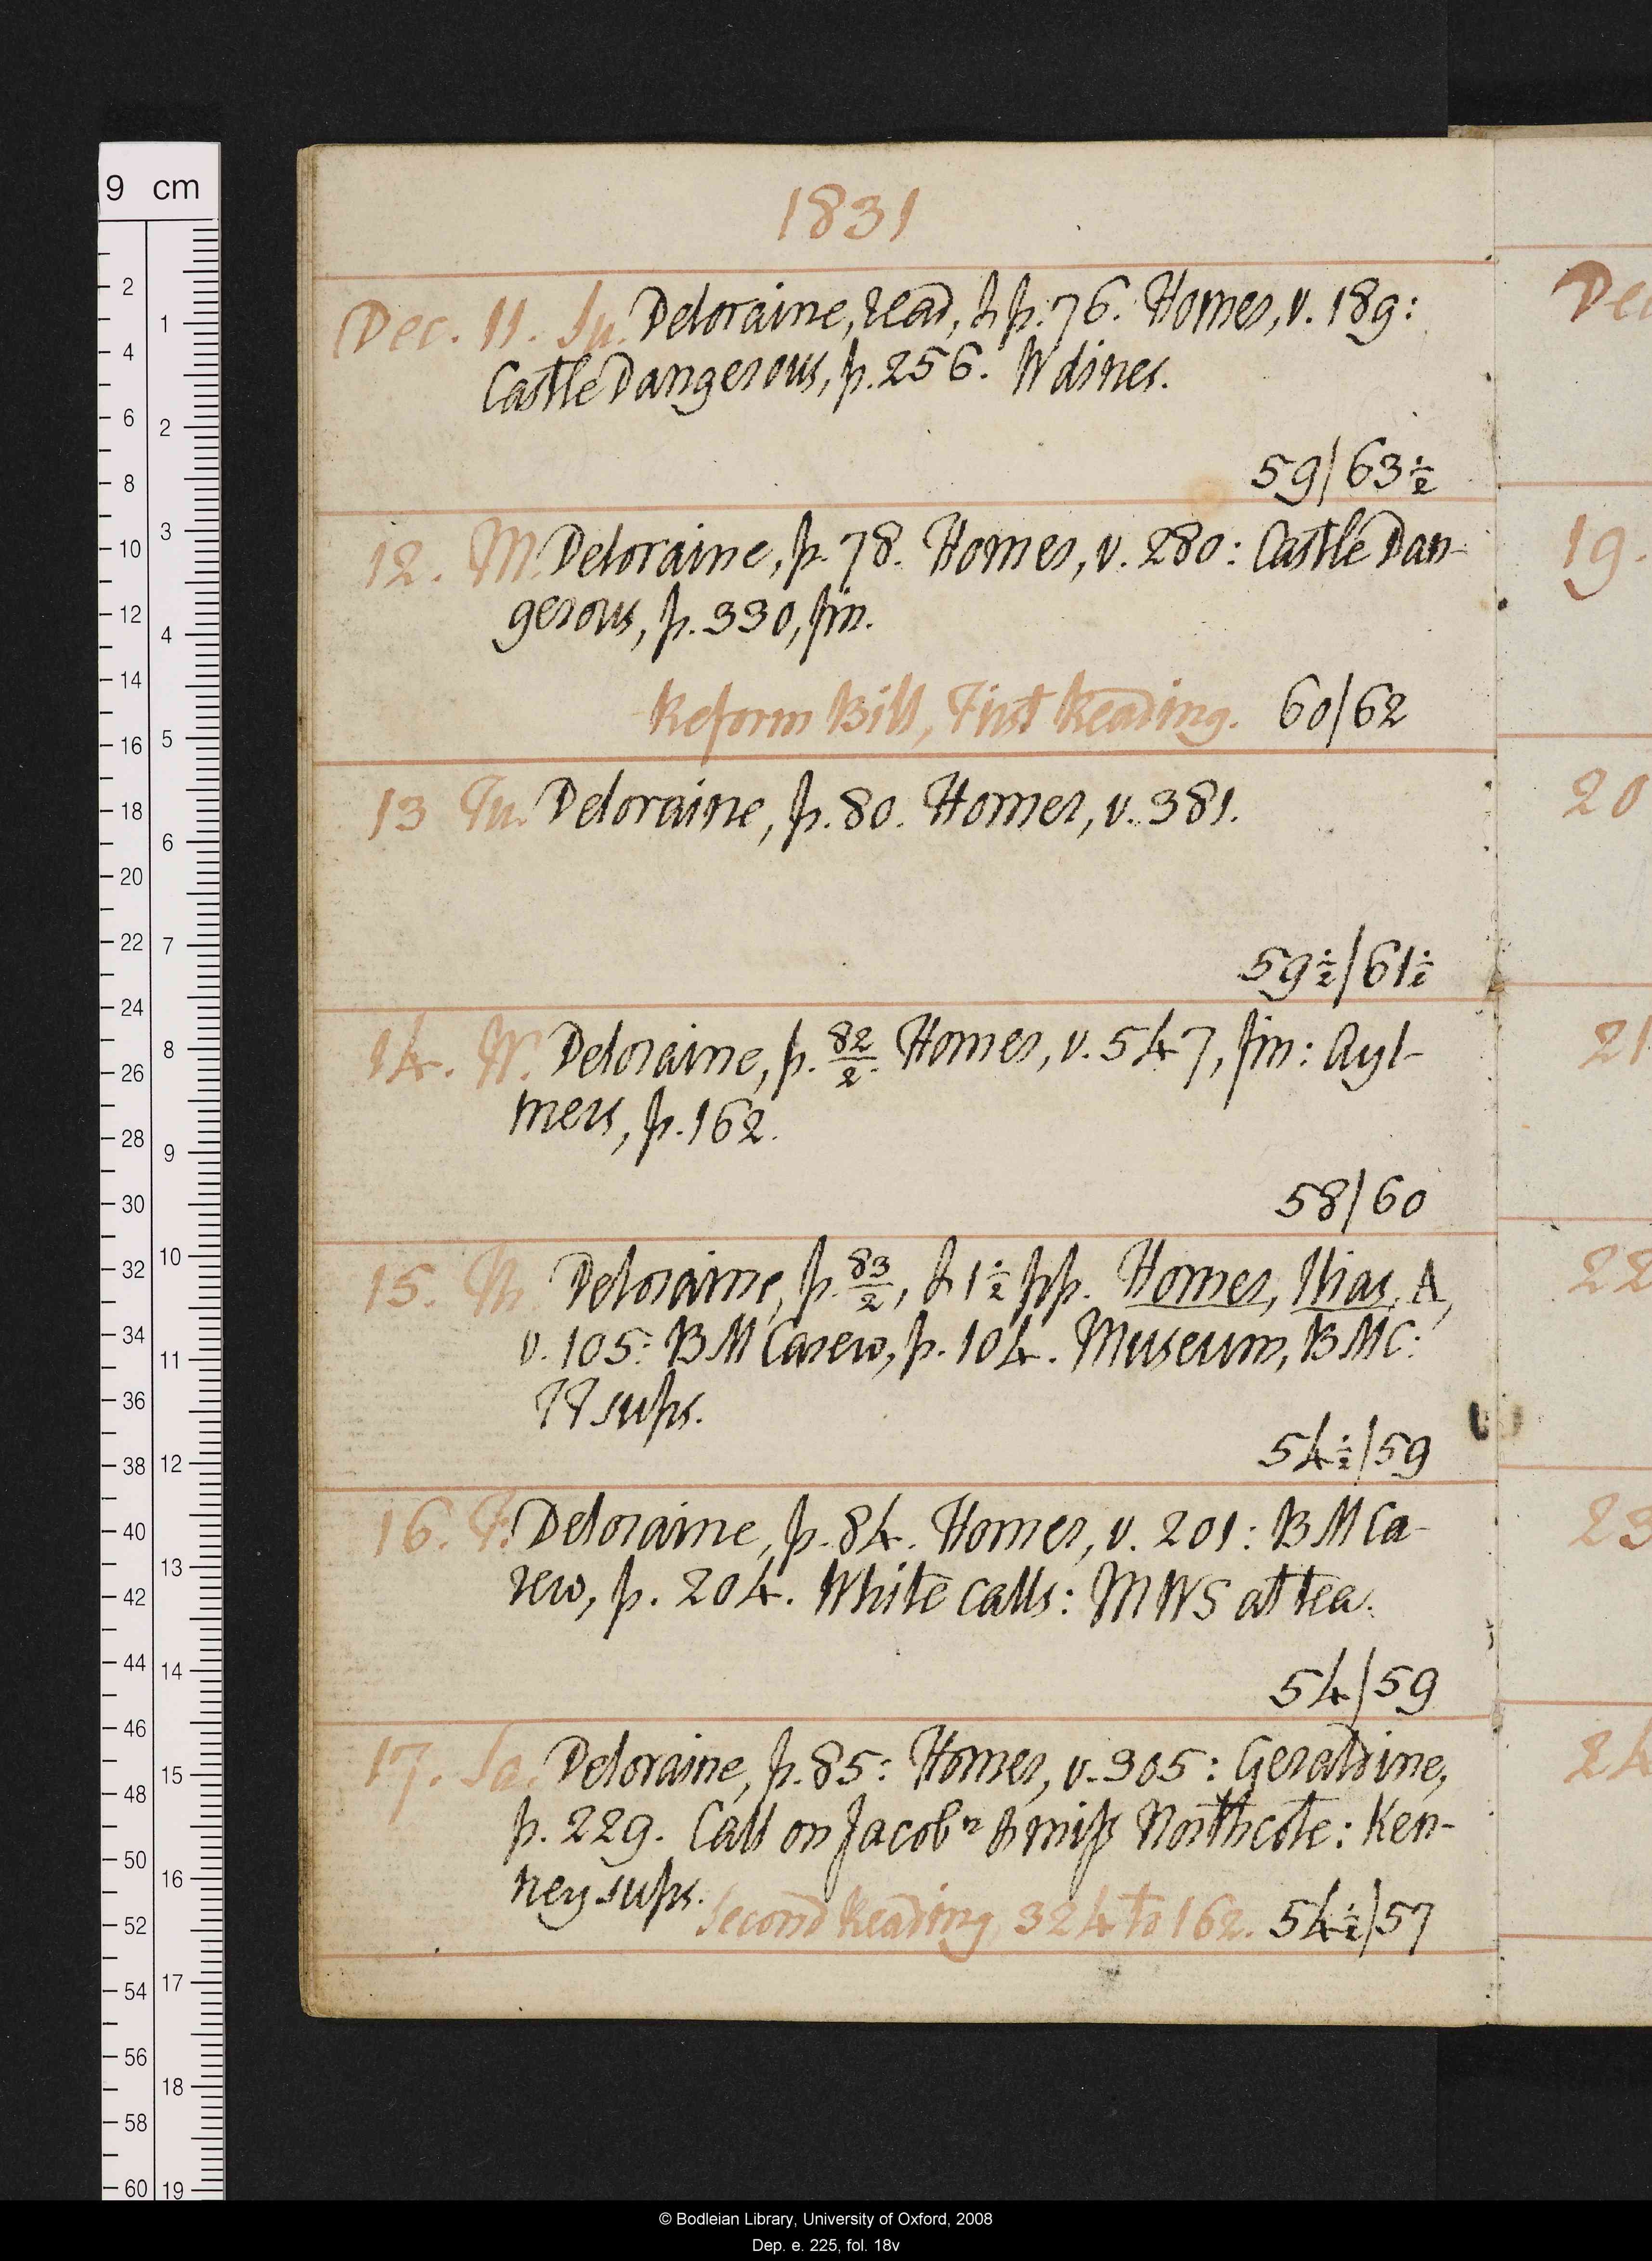 9 cm
1831
Dec. 11. Su. Deloraine, read, & p. 76. Homer, v. 189:
Castle Dangerous, p. 256. W dines.
59/63½
12. M. Deloraine, p. 78. Homer, v. 280: Castle Dan-
gerous, p. 330, fin.
Reform Bill, First Reading. 60/62
13 Tu. Deloraine, p. 80. Homer, v. 381.
59½/61½
14. W. Deloraine, p. 82/2. Homer, v. 547, fin: Ayl-
mers, p. 162.
58/60
15. Th. Deloraine, p. 83/2, & 1½ pp. Homer, Ilias, Λ,
v. 105: BM Carew, p. 104. Museum, BMC:
TT sups.
54½/59
16. F. Deloraine, p. 84. Homer, v. 201: BM Ca-
rew, p. 204. White calls: MWS at tea.
54/59
17. Sa. Deloraine, p. 85: Homer, v. 305: Geraldine,
p. 229. Call on Jacobⁿ & miſs Northcote: Ken-
ney sups.
Second Reading, 324 to 162. 54½/57
De
19.
20
21
22
23
24
2
4
6
8
10
12
14
16
18
20
22
24
26
28
30
32
34
36
38
40
42
44
46
48
50
52
54
56
58
60
1
2
3
4
5
6
7
8
9
10
11
12
13
14
15
16
17
18
19
© Bodleian Library, University of Oxford, 2008
Dep. e. 225, fol. 18v